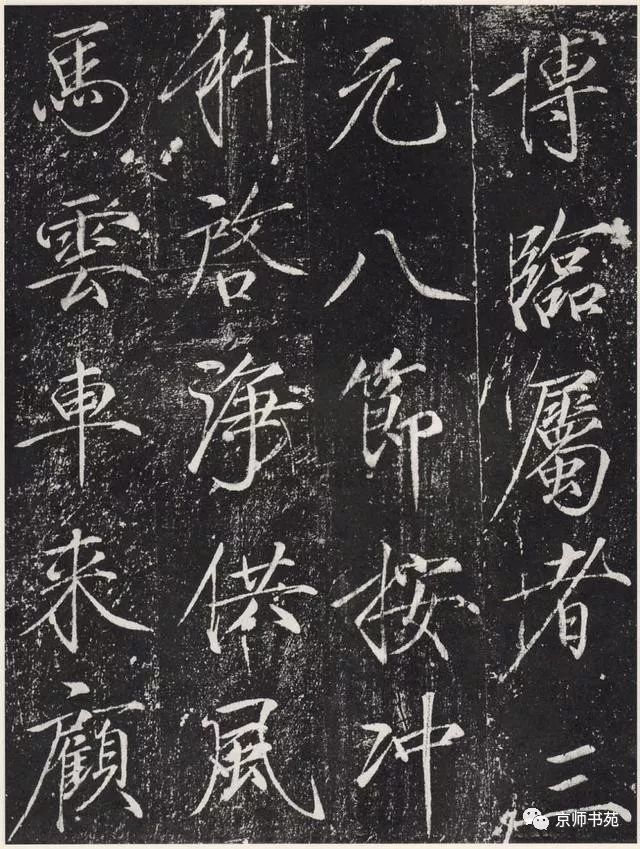 博臨屬者三
元八節按沖
科啓淨供風
馬雲車来顧
京师书苑